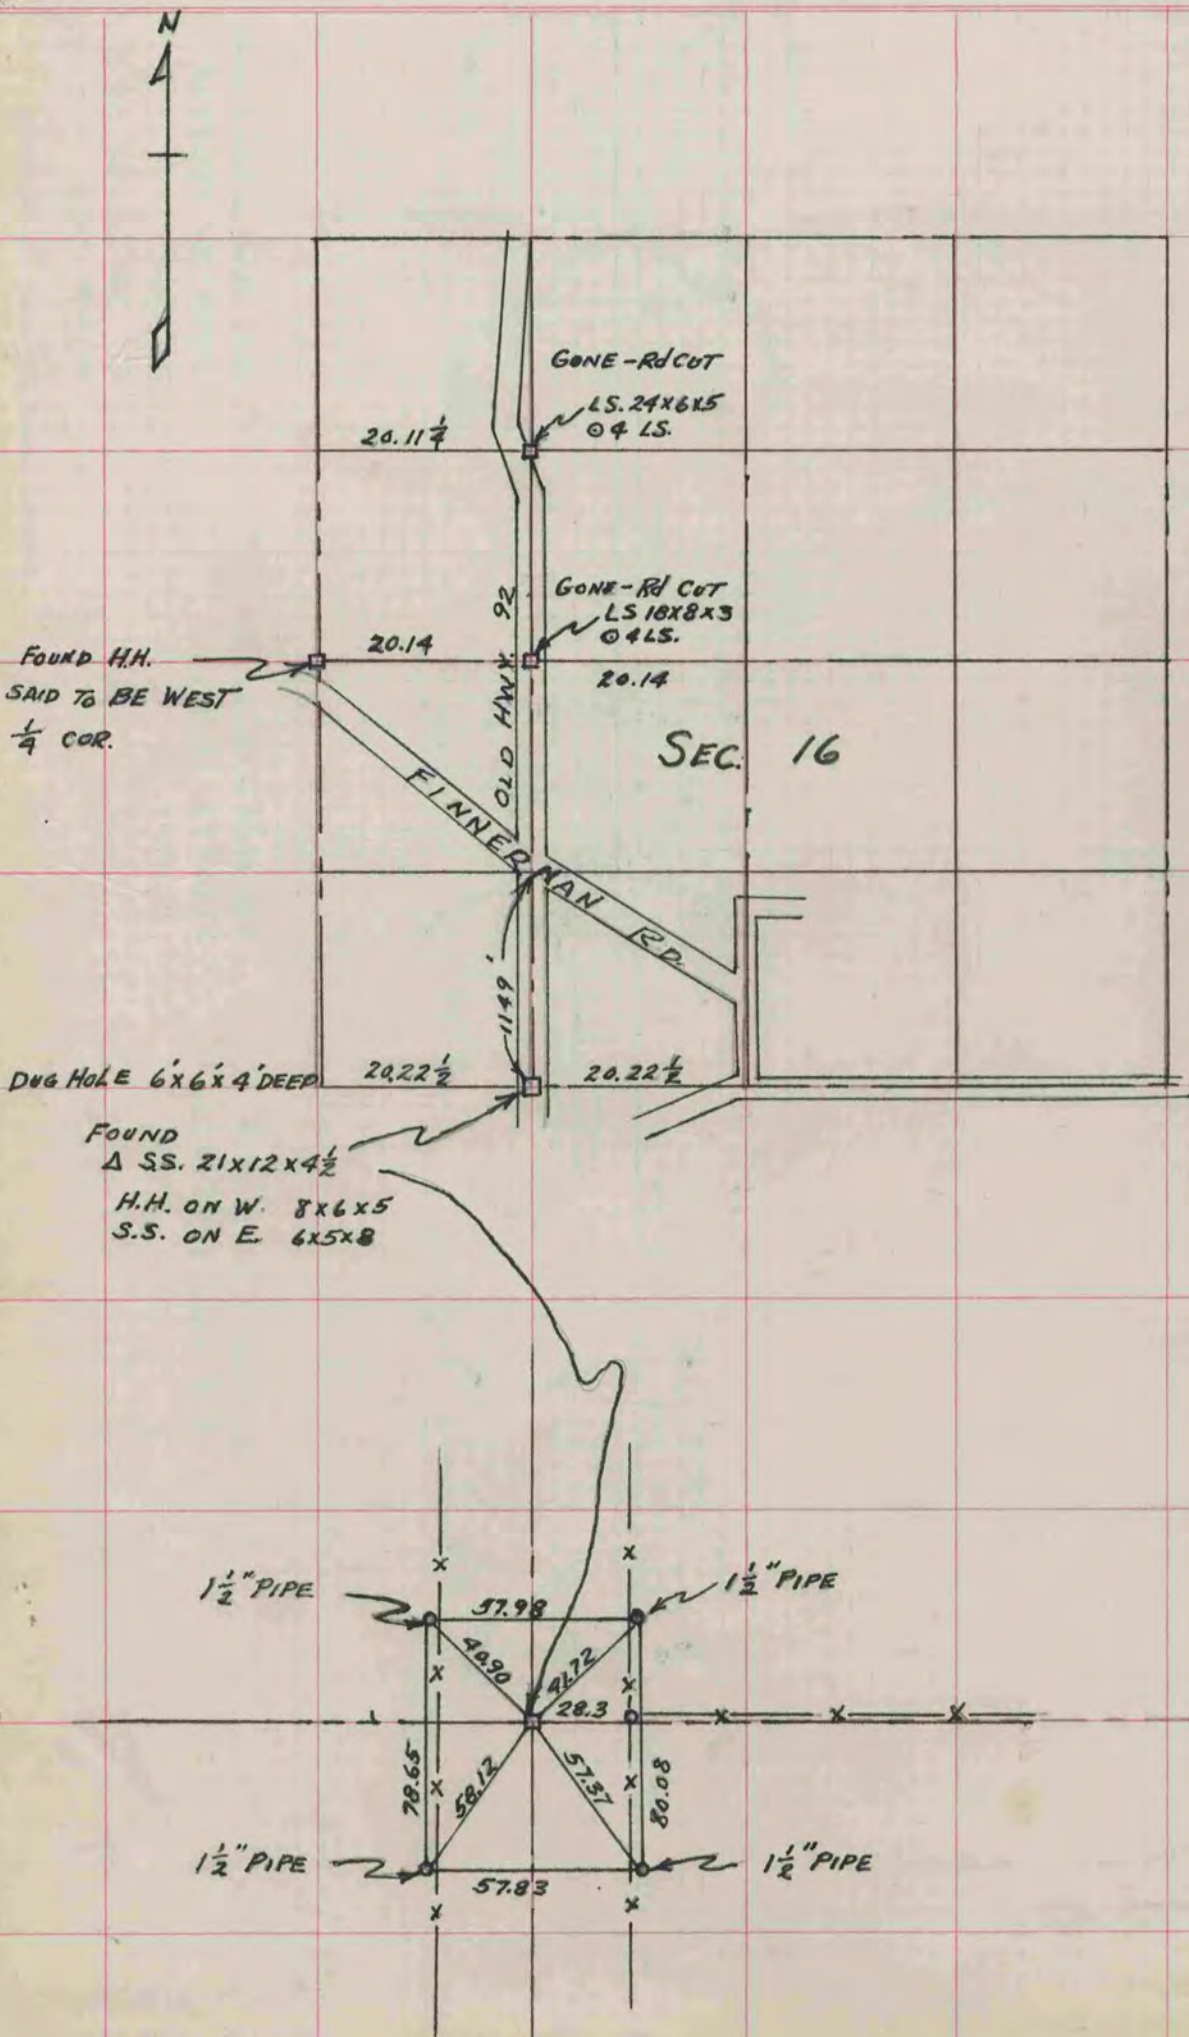 N
GONE - Rd CUT
LS. 24x6x5
⊙ 4 LS.
20.11 1/4
OLD HWY. 92
GONE - Rd CUT
LS 18x8x3
⊙ 4 LS.
FOUND H.H.
SAID TO BE WEST
1/4 COR.
20.14
20.14
SEC. 16
FINNERMAN RD.
1149'
DUG HOLE 6'x6'x4' DEEP
20.22 1/2
20.22 1/2
FOUND
Δ SS. 21x12x4 1/2
H.H. ON W. 8x6x5
S.S. ON E. 6x5x8
1 1/2" PIPE
1 1/2" PIPE
57.98
40.90
41.72
28.3
78.65
58.12
57.37
80.08
1 1/2" PIPE
1 1/2" PIPE
57.83